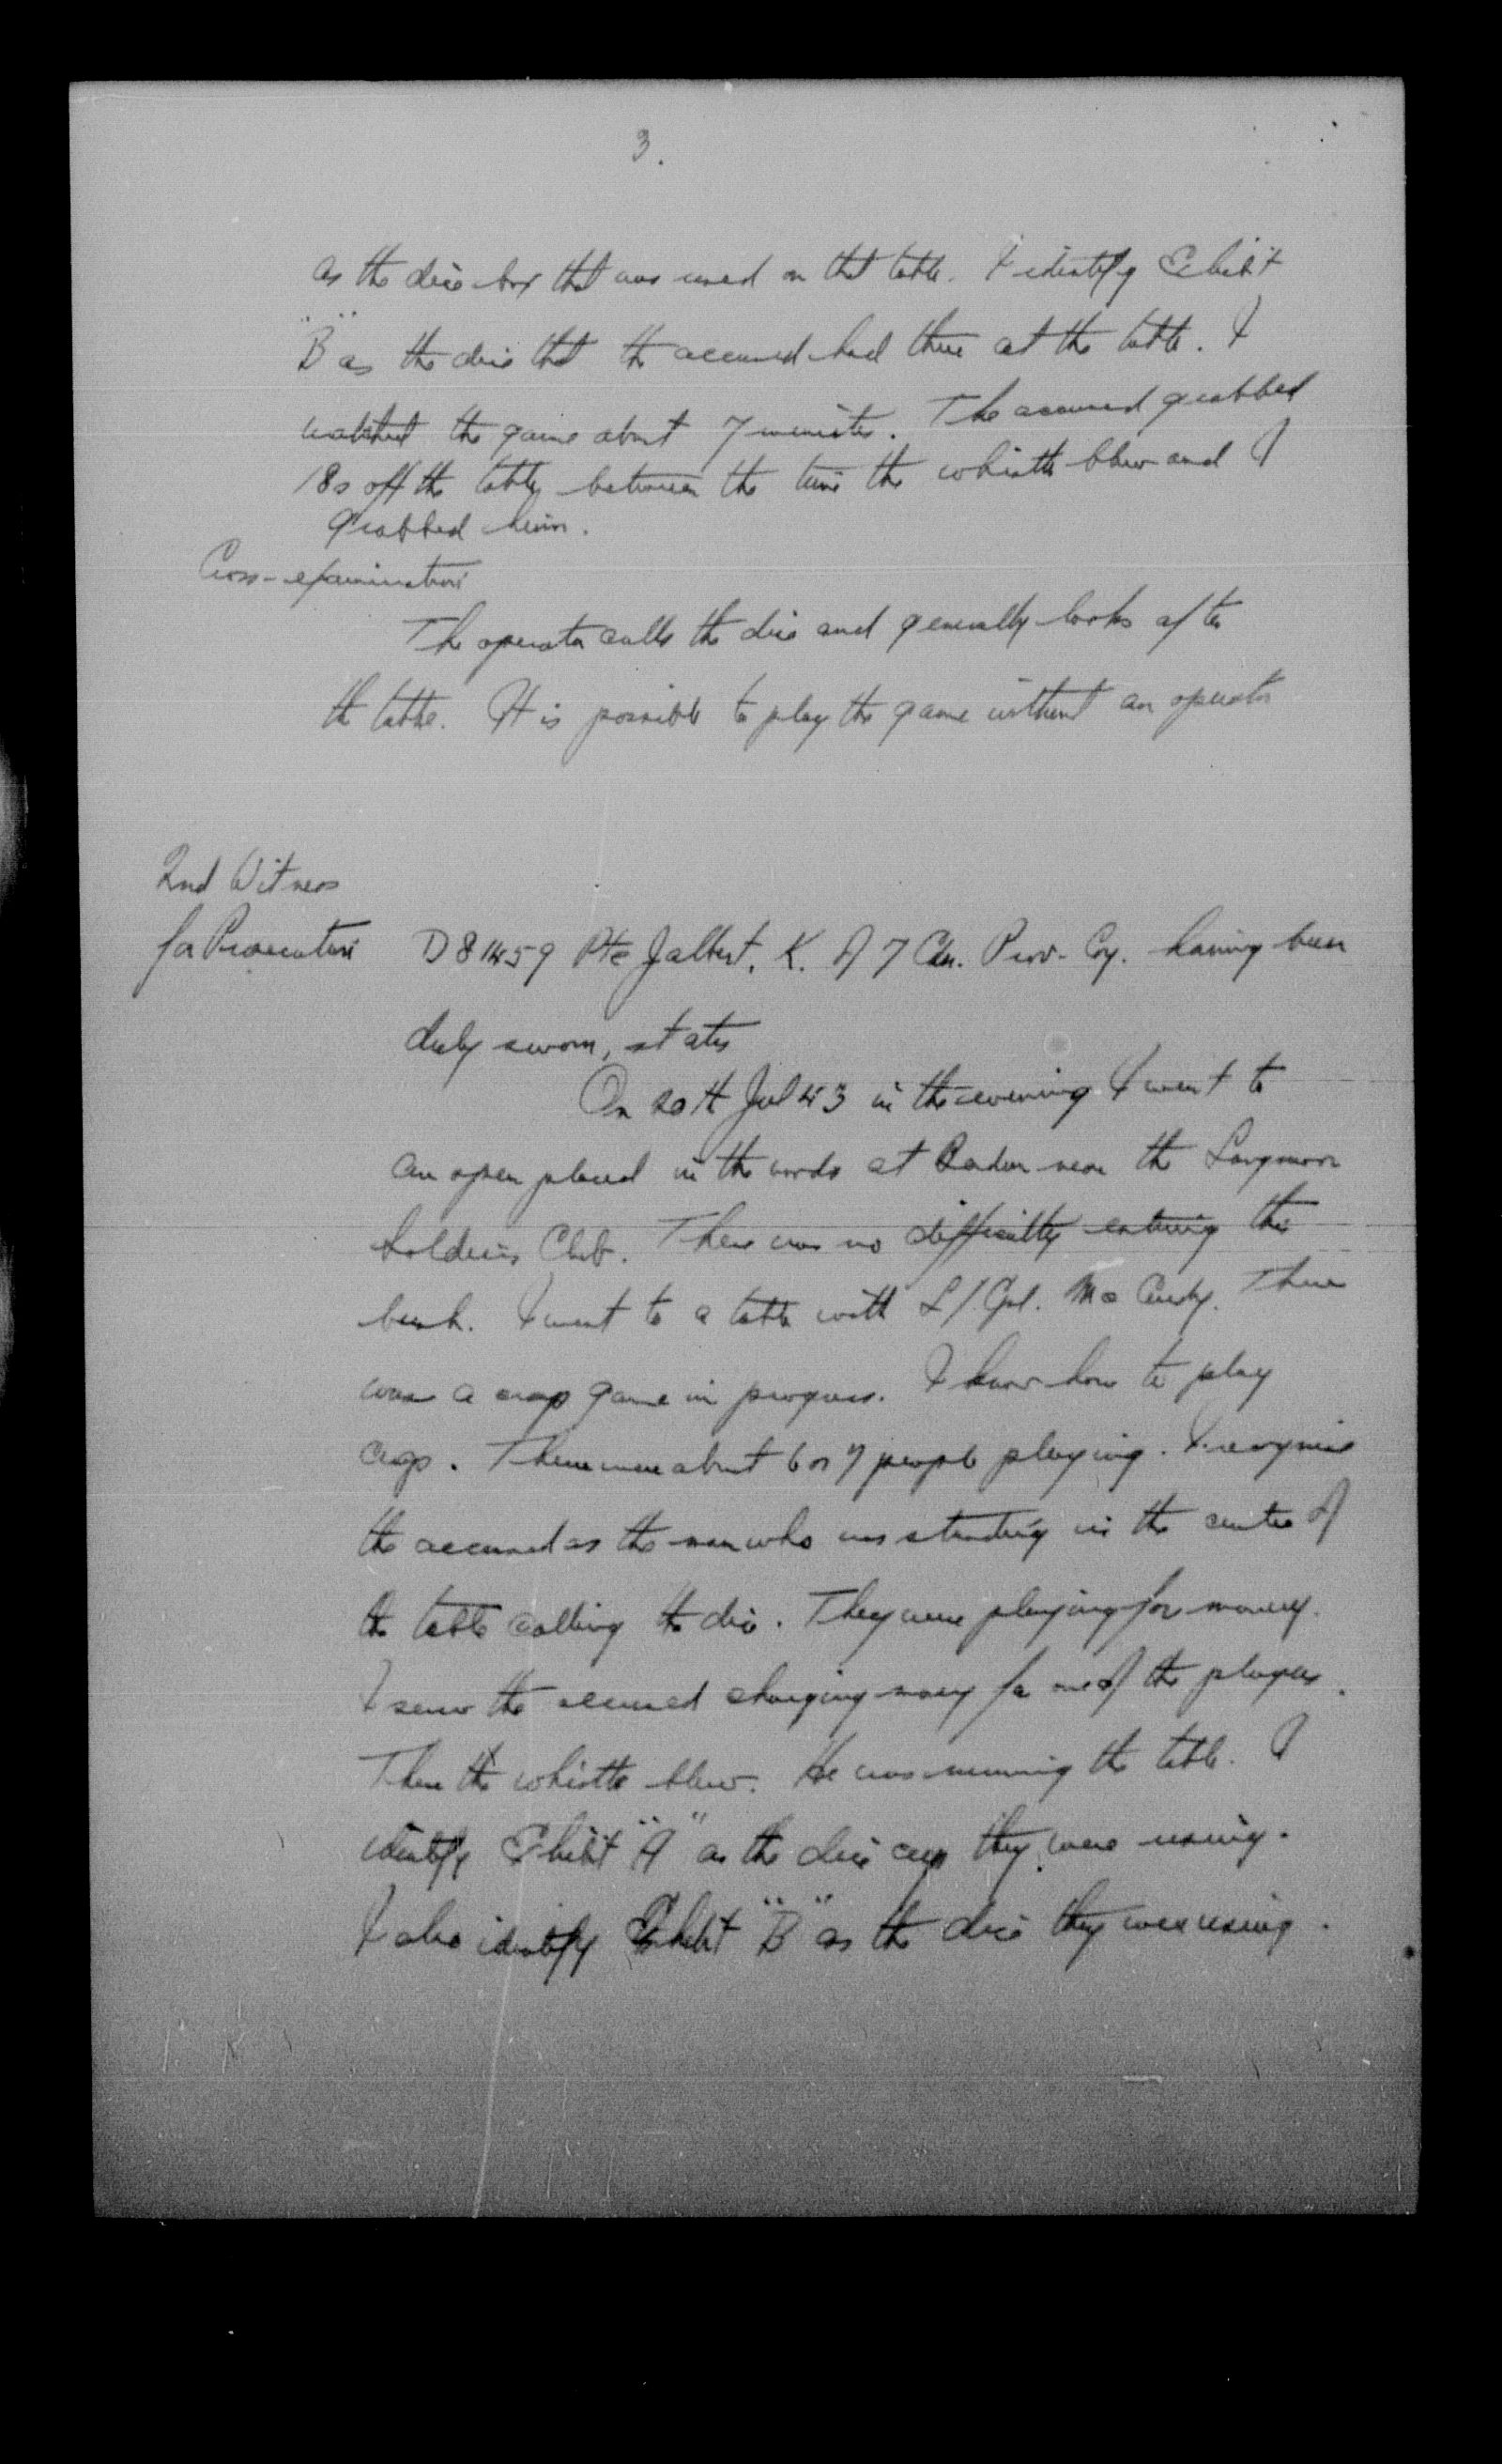 3.
as the dice box that was used on that table. I identify Exhibit
"B" as the dice that the accused had there at the table. I
watched the game about 7 minutes. The accused grabbed
18s off the table between the time the whistle blew and I
grabbed him.
Cross-examination
The operator calls the dice and generally looks after
the table. It is possible to play the game without an operator
2nd Witness
for Prosecution D81459 Pte Jalbert, K. of 7 Cdn. Prov. Coy. having been
duly sworn, states
On 20th Jul 43 in the evening I went to
an open placed in the woods at near the Longmoor
Soldiers Club. There was no difficulty entering the
bush. I went to a table with L/Cpl. There
was a crap game in progress. I know how to play
craps. There were about 6 or 7 people playing. I recognize
the accused as the man who was standing in the centre of
the table calling the dice. They were playing for money.
I saw the accused changing money for one of the players.
Then the whistle blew. He was running the table. I
identify Exhibit "A" as the dice cup they were using.
I also identify Exhibit "B" as the dice they were using.